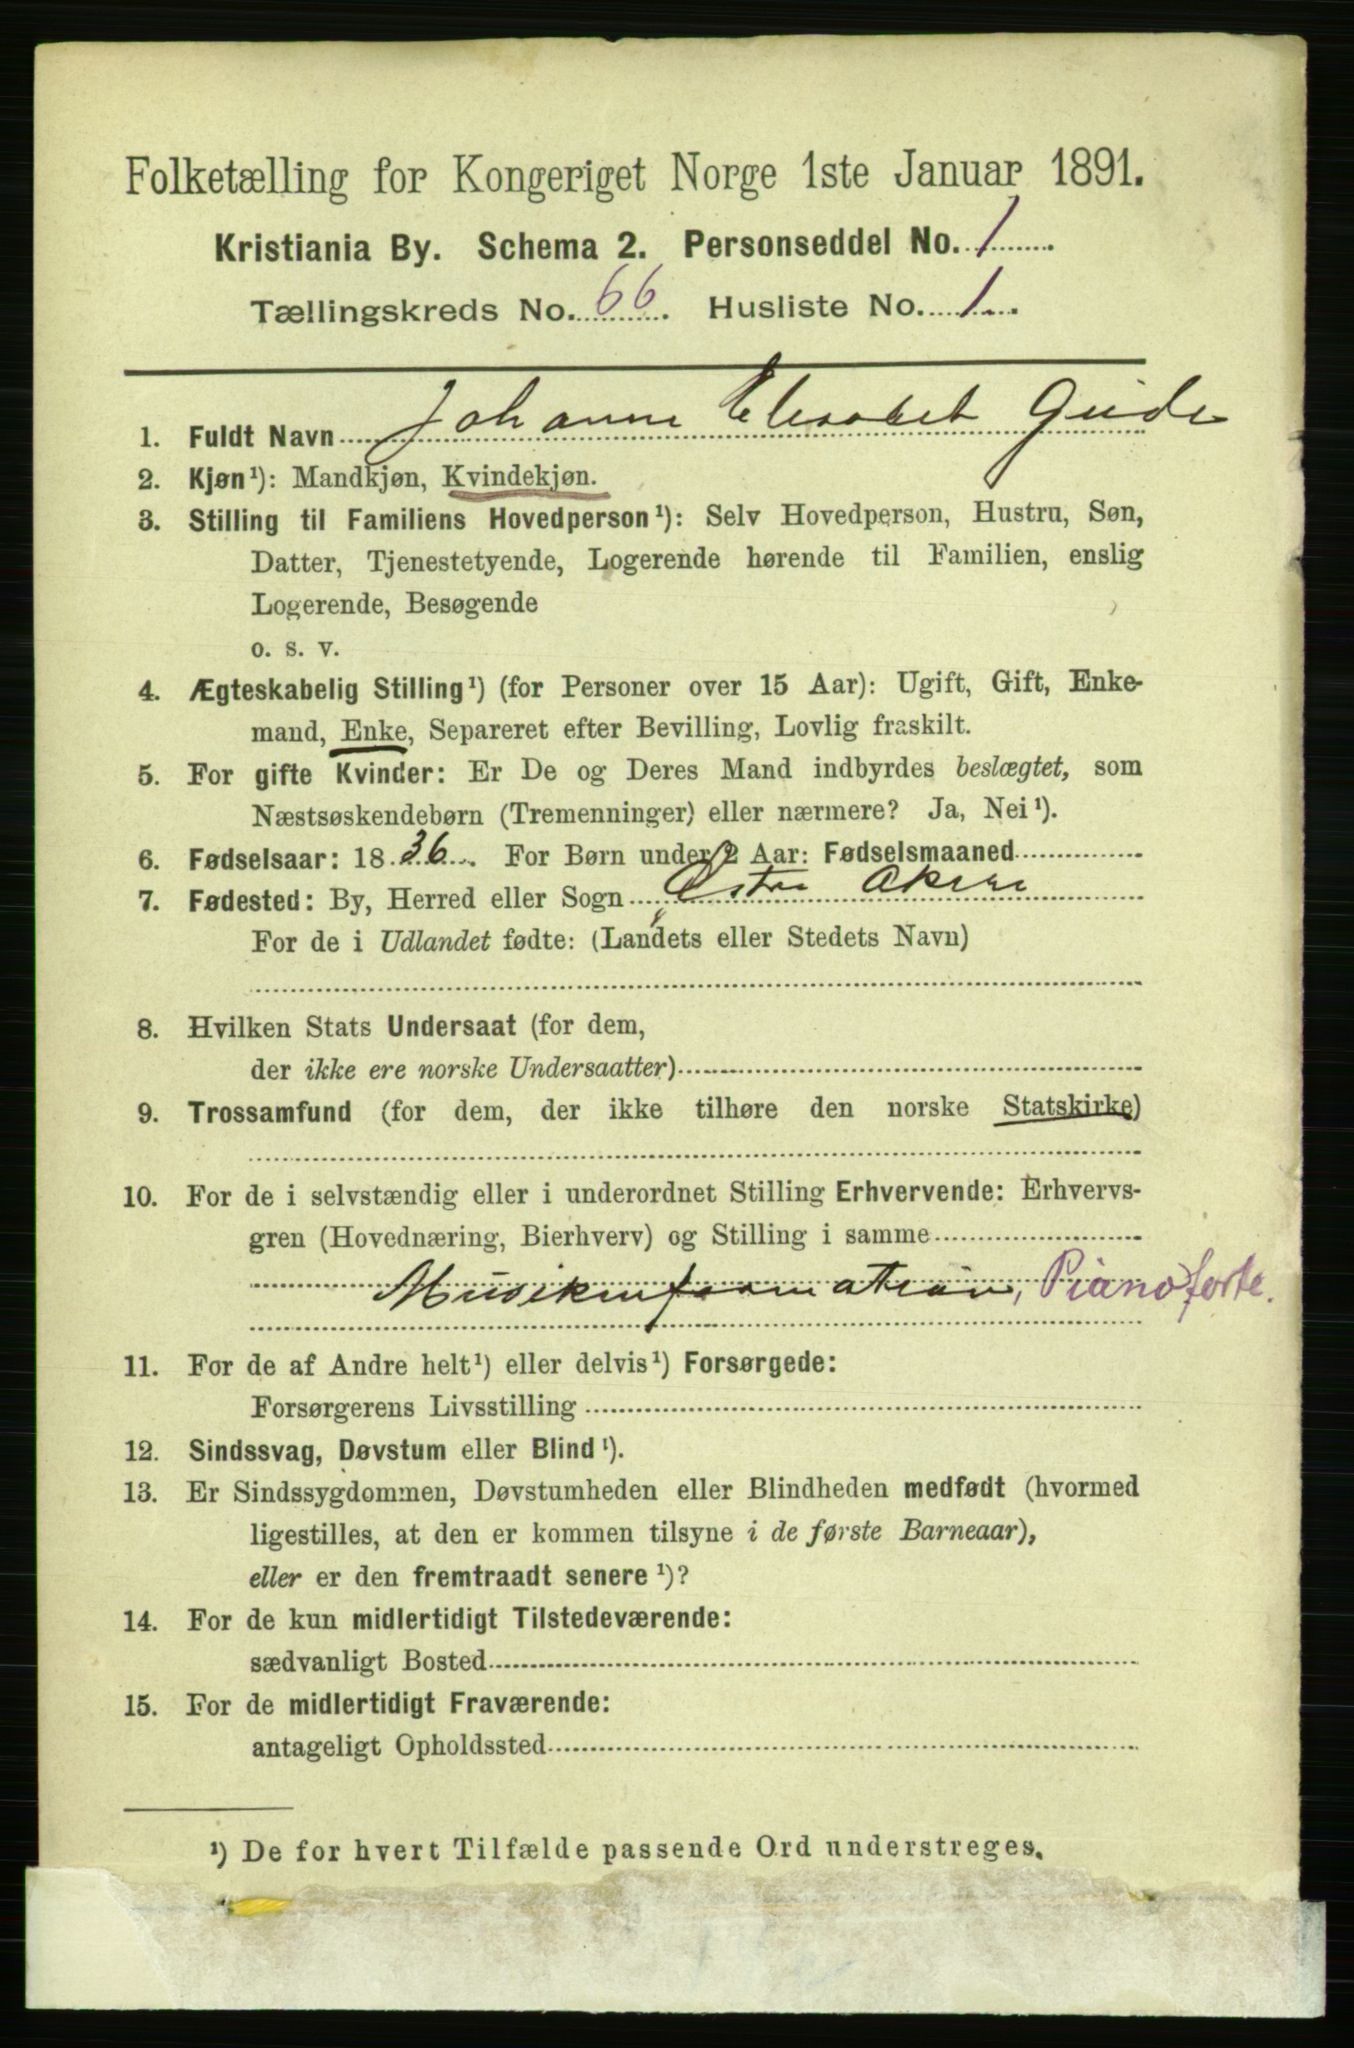 Folketælling for Kongeriget Norge 1ste Januar 1891.
Kristiania By. Schema 2. Personseddel No. 1
Tællingskreds No. 66. Husliste No. 1.
1. Fuldt Navn Johanne Elisabet Gude
2. Kjøn¹): Mandkjøn, Kvindekjøn.
3. Stilling til Familiens Hovedperson¹): Selv Hovedperson, Hustru, Søn,
Datter, Tjenestetyende, Logerende hørende til Familien, enslig
Logerende, Besøgende
o. s. v.
4. Ægteskabelig Stilling¹) (for Personer over 15 Aar): Ugift, Gift, Enke-
mand, Enke, Separeret efter Bevilling, Lovlig fraskilt.
5. For gifte Kvinder: Er De og Deres Mand indbyrdes beslægtet, som
Næstsøskendebørn (Tremenninger) eller nærmere? Ja, Nei¹).
6. Fødselsaar: 1836. For Børn under 2 Aar: Fødselsmaaned
7. Fødested: By, Herred eller Sogn Østre Akere
For de i Udlandet fødte: (Landets eller Stedets Navn)
8. Hvilken Stats Undersaat (for dem,
der ikke ere norske Undersaatter)
9. Trossamfund (for dem, der ikke tilhøre den norske Statskirke)
10. For de i selvstændig eller i underordnet Stilling Erhvervende: Erhvervs-
gren (Hovednæring, Bierhverv) og Stilling i samme
Musikinformation, Pianoforte.
11. For de af Andre helt¹) eller delvis¹) Forsørgede:
Forsørgerens Livsstilling
12. Sindssvag, Døvstum eller Blind¹).
13. Er Sindssygdommen, Døvstumheden eller Blindheden medfødt (hvormed
ligestilles, at den er kommen tilsyne i de første Barneaar),
eller er den fremtraadt senere¹)?
14. For de kun midlertidigt Tilstedeværende:
sædvanligt Bosted
15. For de midlertidigt Fraværende:
antageligt Opholdssted
¹) De for hvert Tilfælde passende Ord understreges.